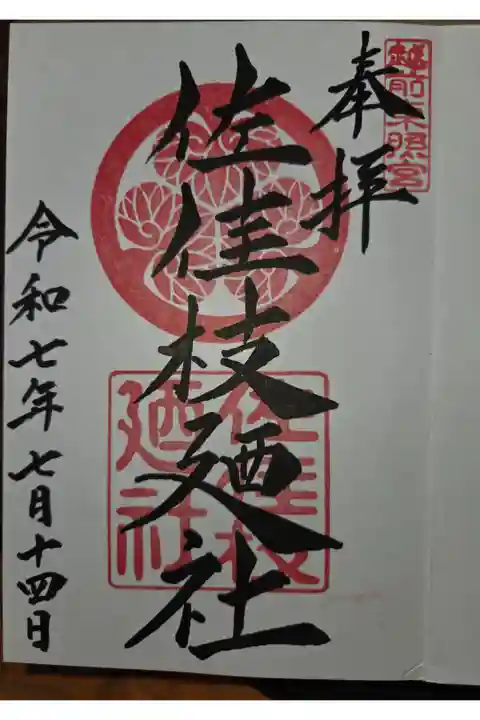 越前東照宮
奉拝
佐佳枝廼社
佐佳枝廼社
令和七年七月十四日